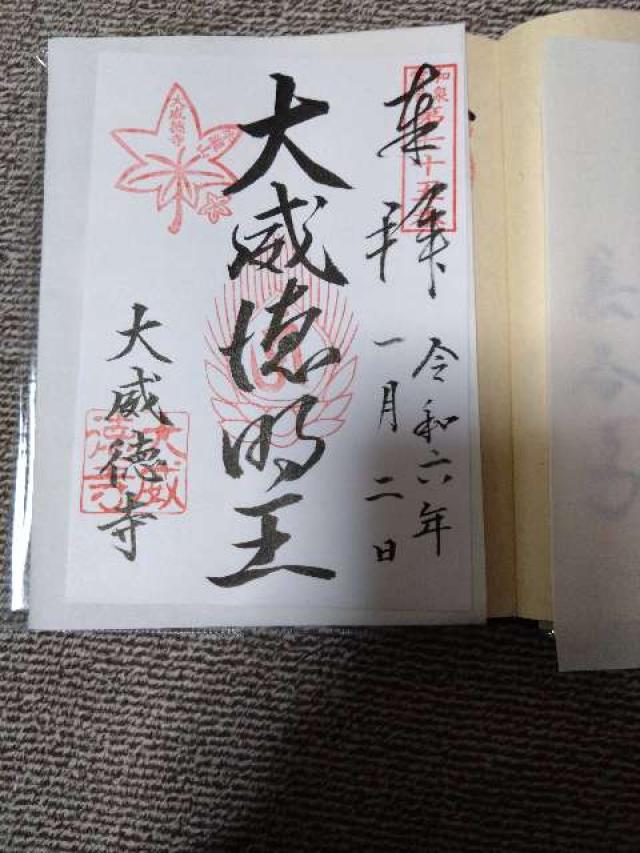 奉拝
令和六年
一月二日
大威徳明王
大威徳寺
大威徳寺
大威徳寺